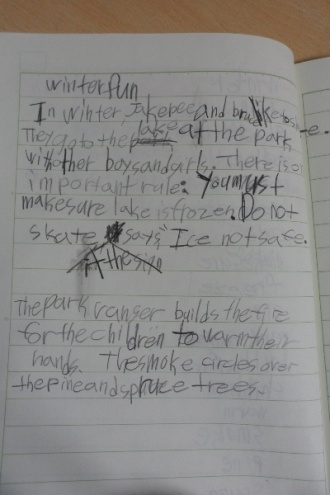 winter fun
In winter, Jake bee and bruc like to skate.
They go to the lake at the park
with other boys and girls. There is a
important rule: You must
make sure lake is frozen. Do not
skate says" Ice not safe.
if the sign
The park ranger builds the fire
for the children to warm their
hands. The smoke circles over
the pine and spruce trees.